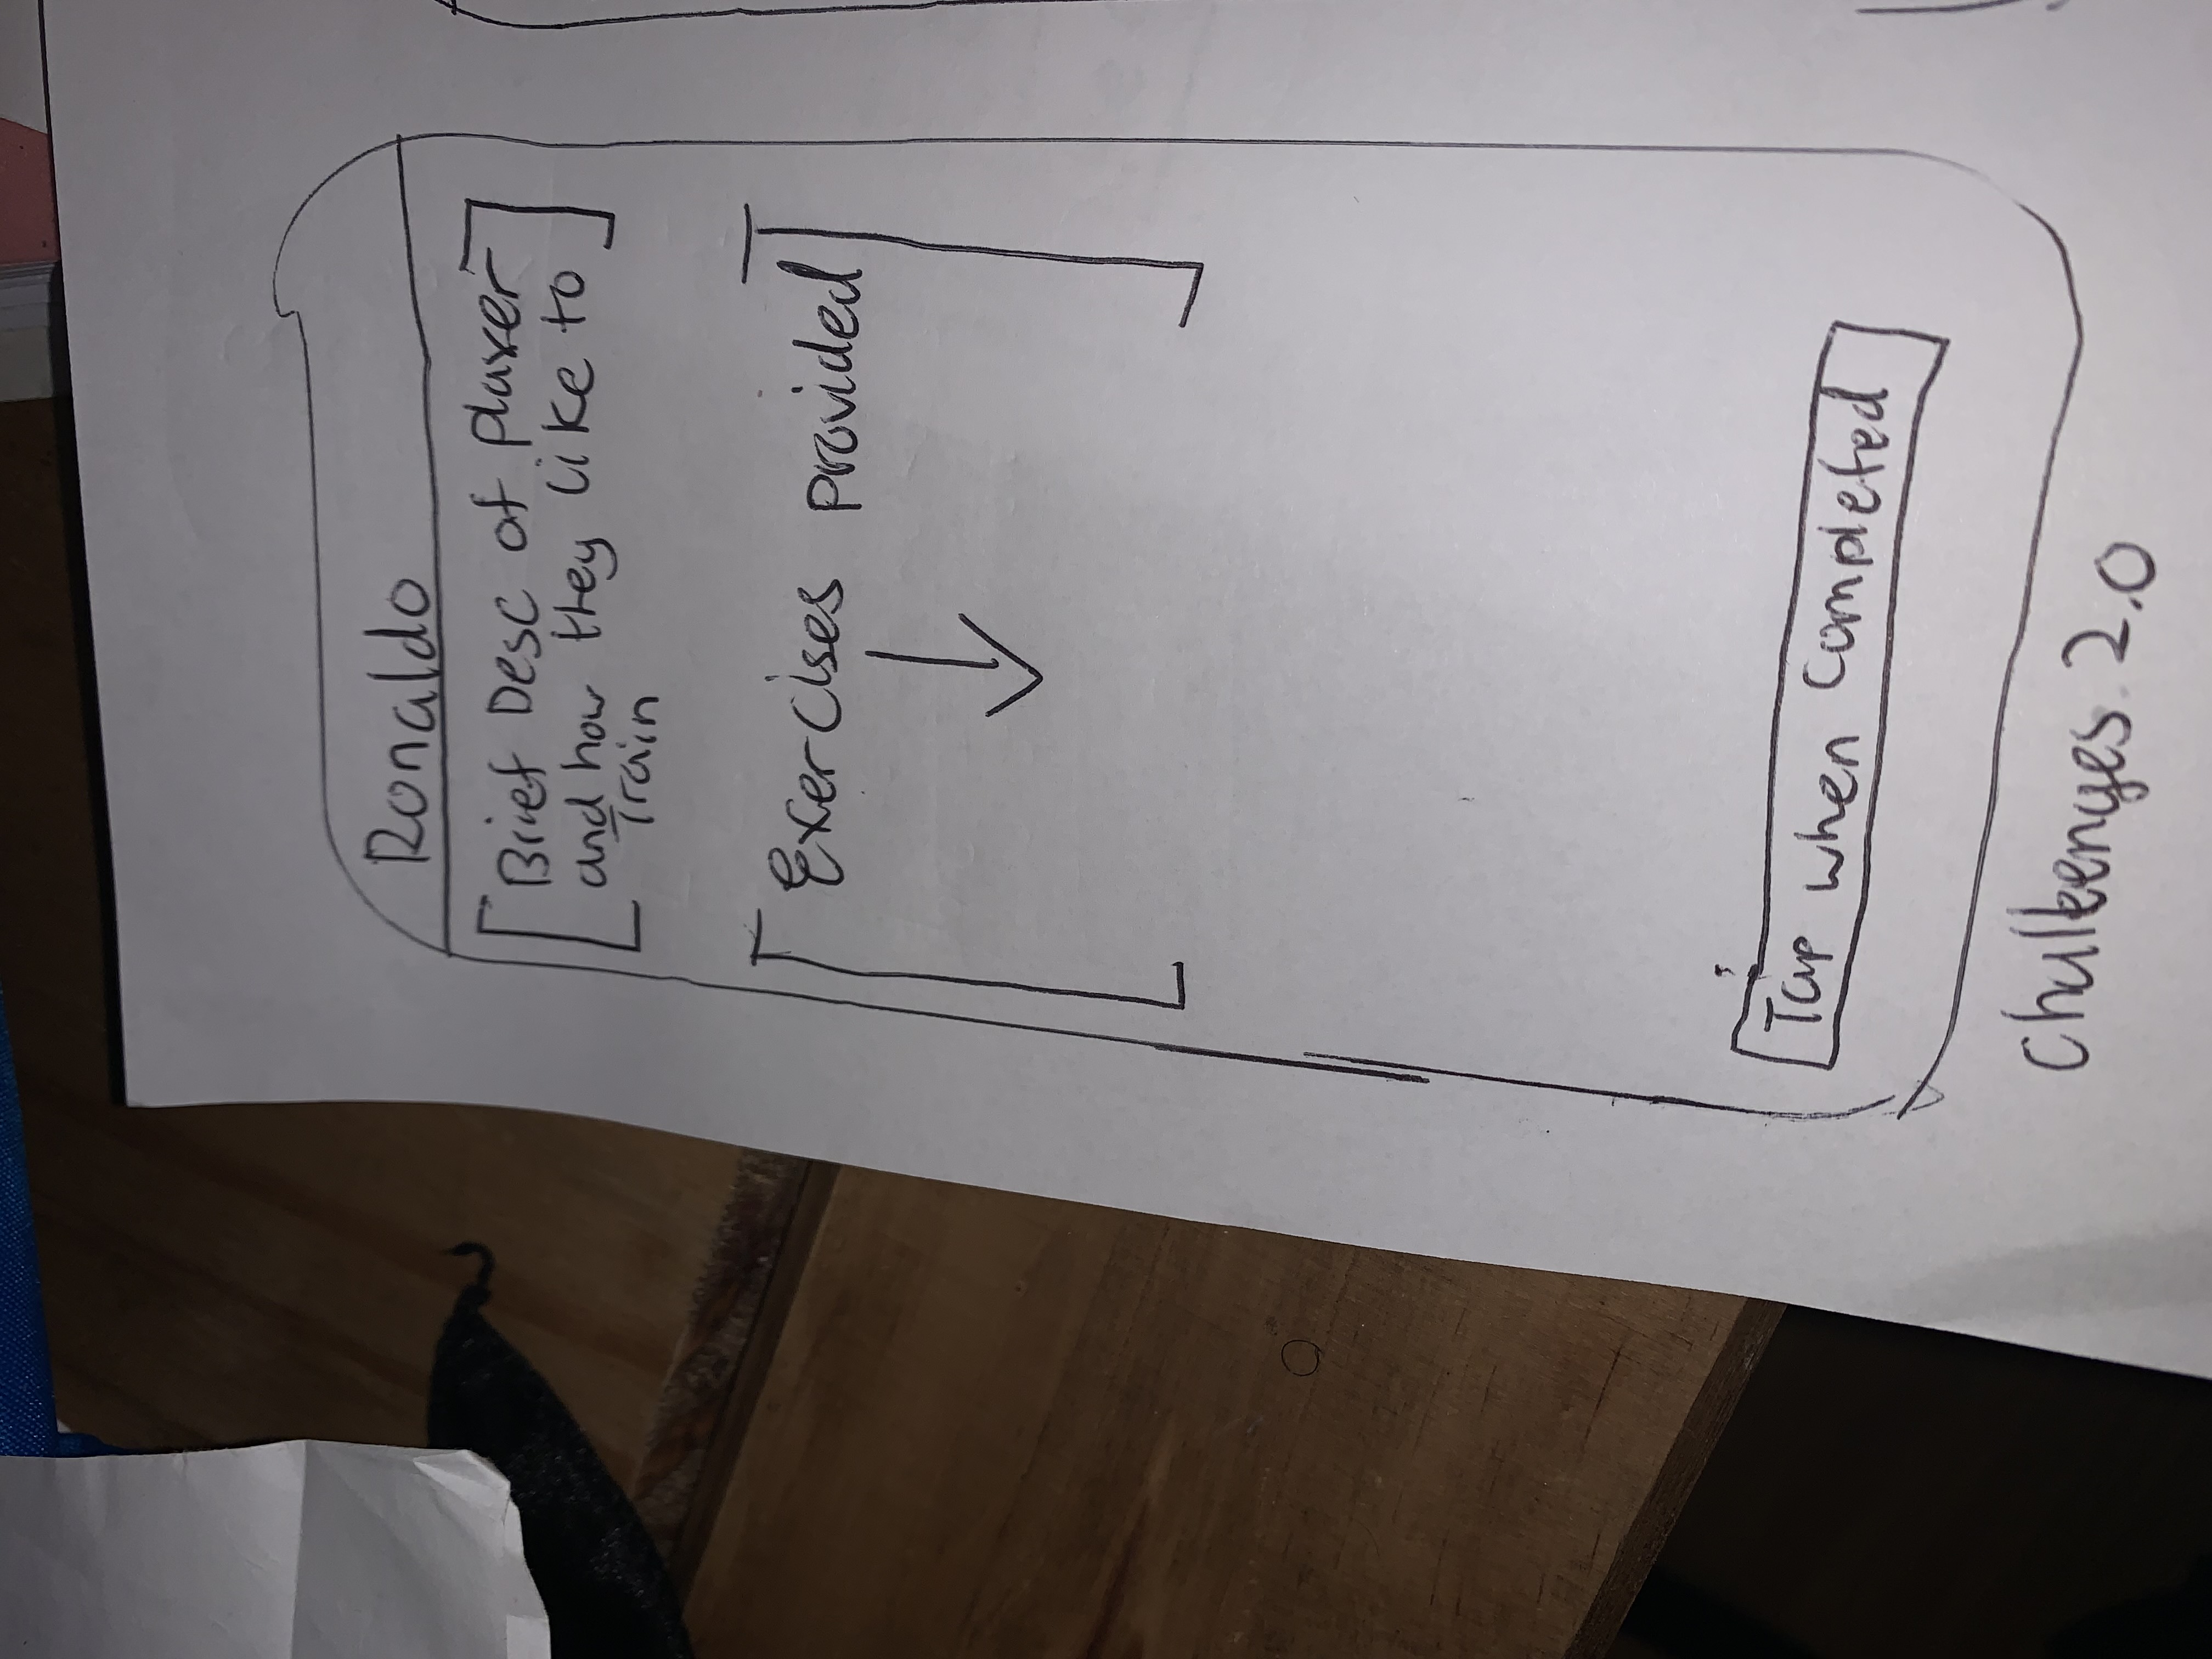 Ronaldo
Brief Desc of player
and how they like to
Train
Exercises provided
Tap when completed
Challenges 2.0